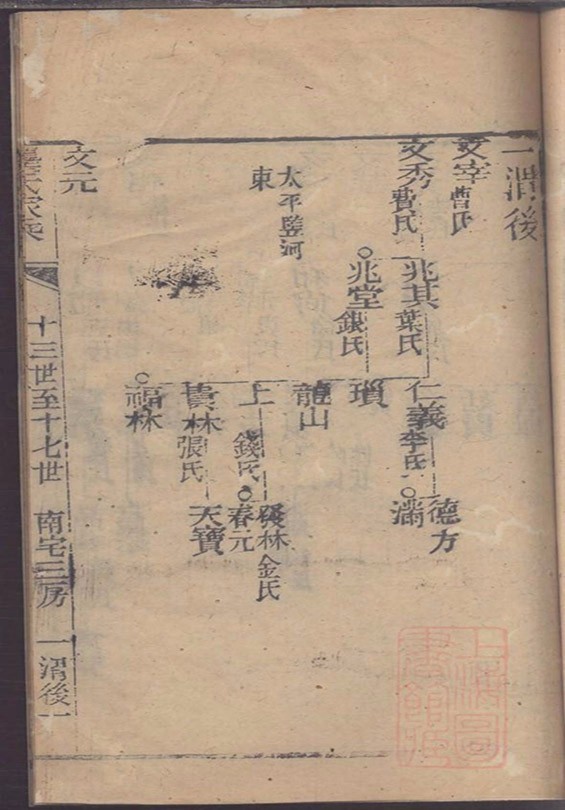 一渭後
文宰曹氏
文秀費氏
兆其葉氏
仁義李氏
德方
滿
兆堂銀氏
瑣
龍山
太平墅河
東
上錢氏
林金氏
春元
林張氏
天寶
福林
文元
氏家乘
十三世至十七世 南宅三房 一渭後 一
上海圖書館藏